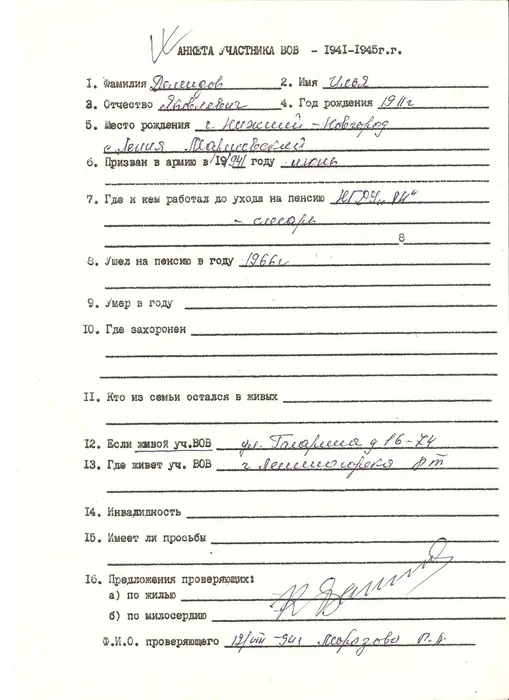 АНКЕТА УЧАСТНИКА ВОВ - 1941-1945г.г.
1. Фамилия Демидов 2. Имя Илья
3. Отчество Яковлевич 4. Год рождения 1911г
5. Место рождения г. Нижний-Новгород
с.
6. Призван в армию в 1941 году июнь
7. Где и кем работал до ухода на пенсию НГДУ
- слесарь
8
8. Ушел на пенсию в году 1966г
9. Умер в году
10. Где захоронен
11. Кто из семьи остался в живых
12. Если живой уч.ВОВ ул. Гагарина д 16-74
13. Где живет уч. ВОВ г Лениногорск РТ
14. Инвалидность
15. Имеет ли просьбы
16. Предложения проверяющих:
а) по жилью
б) по милосердию
Ф.И.О. проверяющего 12/VIII-94г Морозова